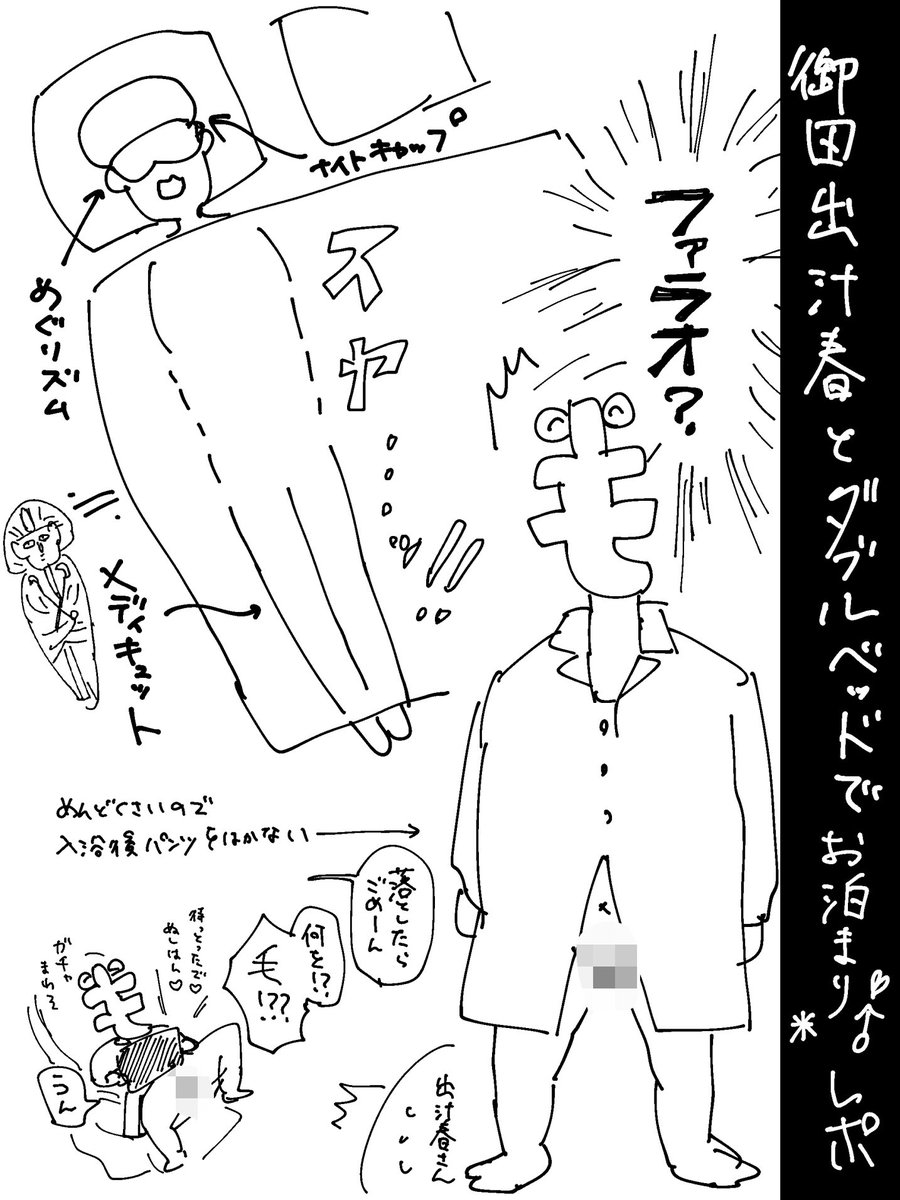 御田出汁春とダブルベッドでお泊まりレポ
ナイトキャップ
めぐりズム
スヤ…
ファラオ?
メディキュット
めんどくさいので
入浴後パンツをはかない
落としたら
ごめーん
何を!?
毛!??
待っとったで♡
ぬしはん♡
ガチャ
まわそ
うん
出汁春さん